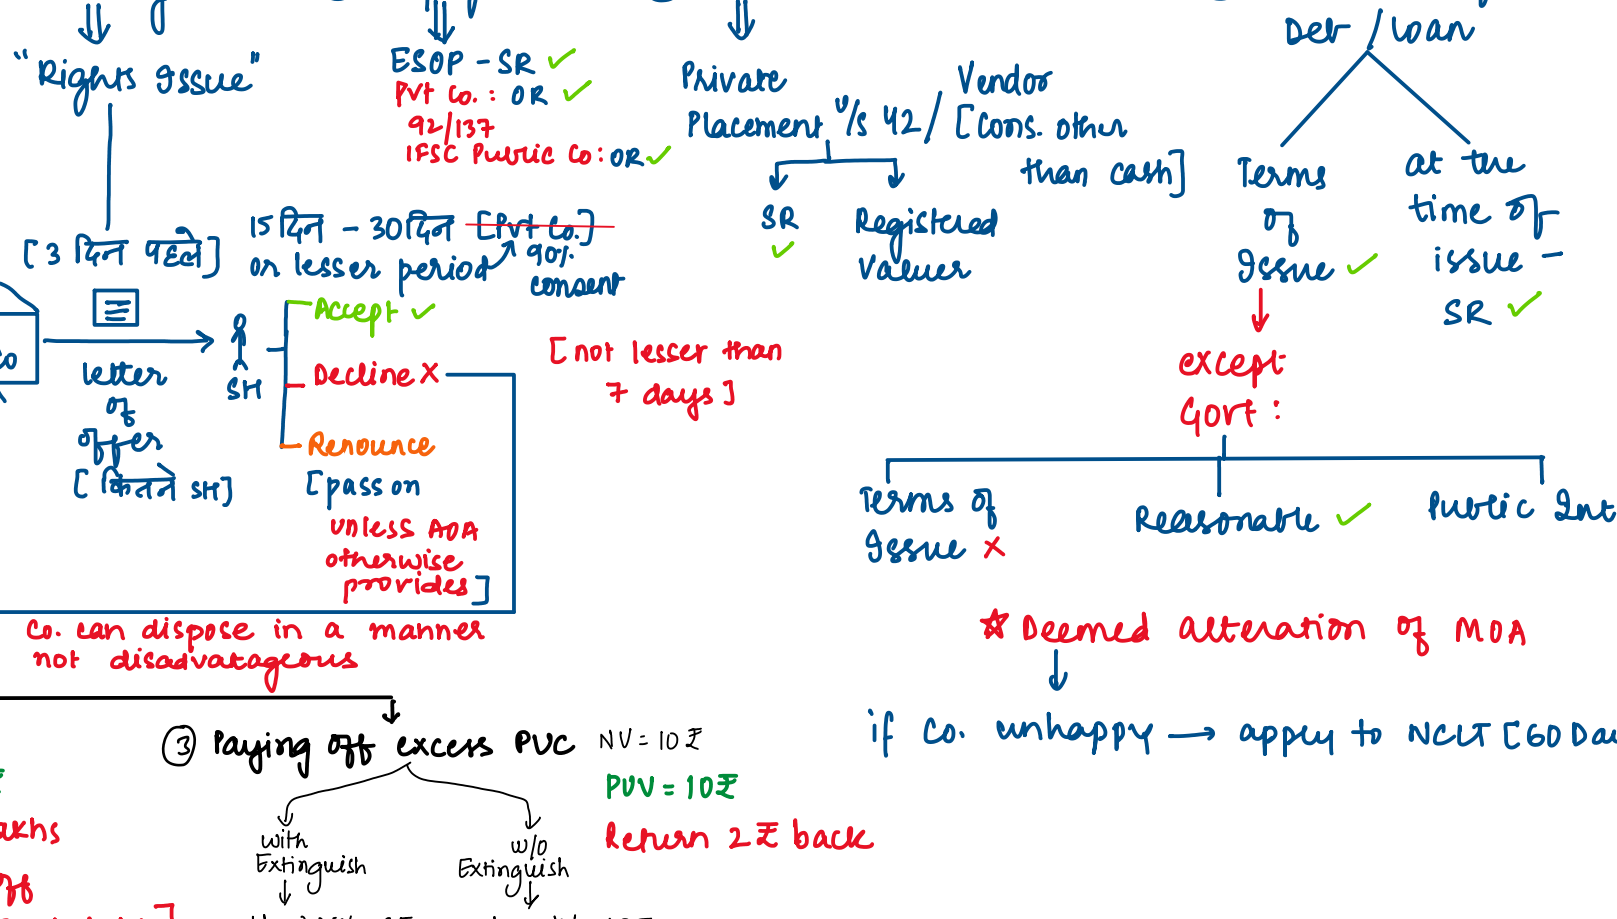 "Rights Issue"
[3 दिन पहले]
letter
of
offer
[कितने SH]
SH
15 दिन - 30 दिन [Pvt Co.]
or lesser period
90%
consent
Accept ✓
Decline X
Renounce
[pass on
unless AOA
otherwise
provides]
[not lesser than
7 days]
Co. can dispose in a manner
not disadvatageous
ESOP - SR ✓
Pvt Co.: OR ✓
92/137
IFSC Public Co: OR ✓
Private
Placement u/s 42 /
SR
✓
Registered
Valuer
Vendor
[Cons. other
than cash]
Deb / Loan
Terms
of
Issue ✓
at the
time of
issue -
SR ✓
except
Govt:
Terms of
Issue X
Reasonable ✓
Public Int
☆ Deemed alteration of MOA
if Co. unhappy → apply to NCLT [60 Da
③ Paying off excess PVC
NV = 10 ₹
PUV = 10 ₹
Return 2 ₹ back
with
Extinguish
w/o
Extinguish
akhs
off